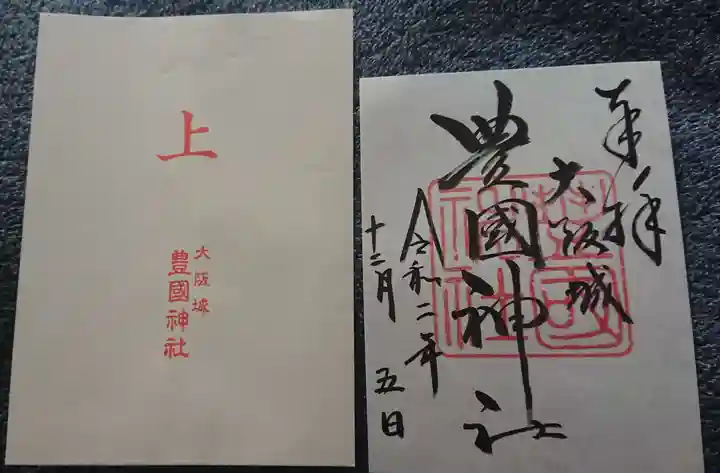 上
大阪城
豊國神社
奉拝
大阪城
豊國神社
令和二年
十二月五日
豊國
神社